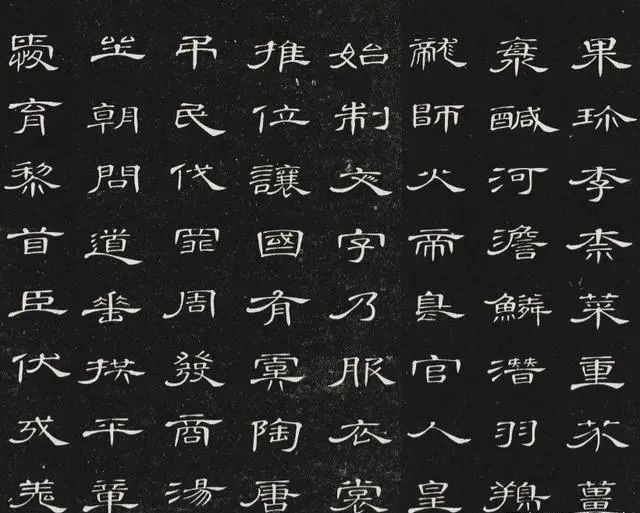 果珍李柰菜重芥薑
海鹹河澹鱗潛羽翔
龍師火帝鳥官人皇
始制文字乃服衣裳
推位讓國有虞陶唐
弔民伐罪周發商湯
坐朝問道垂拱平章
愛育黎首臣伏戎羌